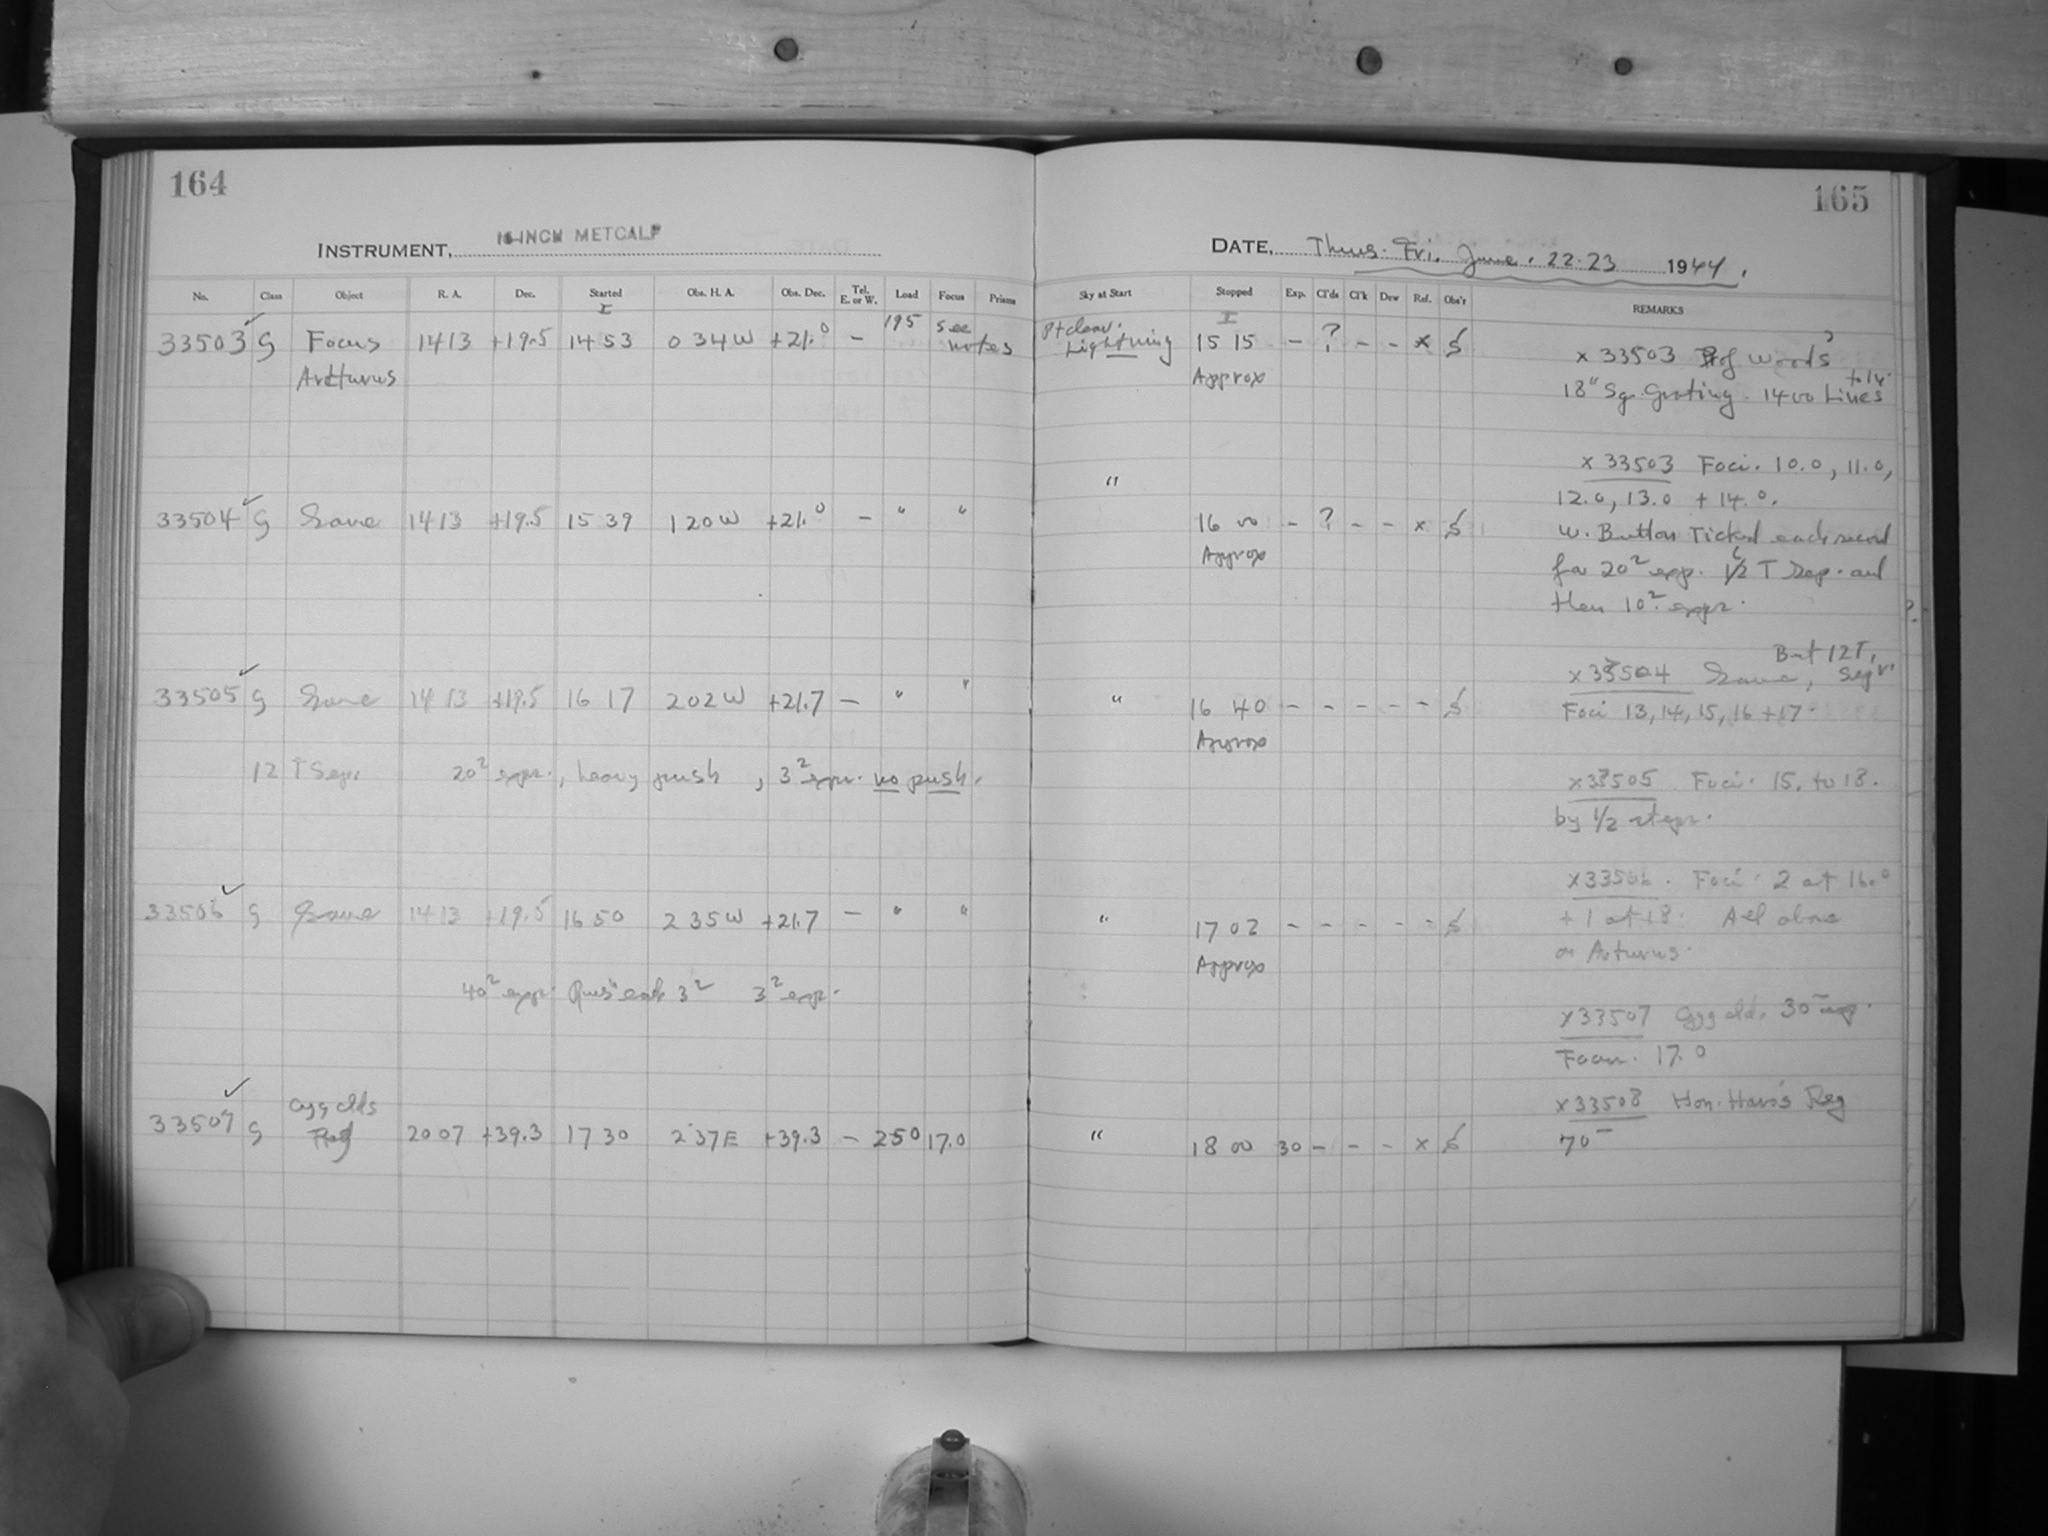 164
INSTRUMENT, 16-INCH METCALF
No. Class Object R. A. Dec. Started Obs. H. A. Obs. Dec. Tel. E. or W. Load Focus Prisms
33503 G Focus 14 13 +19.5 14 53 0 34 W +21.0 – 195 See notes
Arcturus
33504 G Same 14 13 +19.5 15 39 1 20 W +21.0 – " "
33505 G Same 14 13 +19.5 16 17 2 02 W +21.7 – " "
12 T Sepr. 20² expr., heavy push, 3² expr. no push.
33506 G Same 14 13 +19.5 16 50 2 35 W +21.7 – " "
40² expr. Push each 3² 3² expr.
33507 G Cyg clds
Reg 20 07 +39.3 17 30 2 37 E +39.3 – 250 17.0
165
DATE, Thurs. Fri. June. 22-23 1944.
Sky at Start Stopped Exp. Cl'ds Cl'k Dew Ref. Obs'r REMARKS
Pt clear.
Lightning 15 15 – ? – – x
Approx
" 16 00 – ? – – x
Approx
" 16 40 – – – – –
Approx
" 17 02 – – – – –
Approx
" 18 00 30 – – – x
x 33503 Prof Woods'
18" Sq. Grating. 1400 Lines to in
x 33503 Foci. 10.0, 11.0,
12.0, 13.0 + 14.0.
w. Button Ticked each second
for 20² exp. 1/2 T Sep. and
then 10² expr.
x 33504 Same, But 12T, Sepr.
Foci 13, 14, 15, 16 + 17.
x 33505 Foci. 15. to 18.
by 1/2 steps.
x 33506. Foci. 2 at 16.0
+ 1 at 18. All above
on Arturus.
x 33507 Cyg cld. 30 exp.
Focus. 17.0
x 33508 Hon. Haro's Reg
70